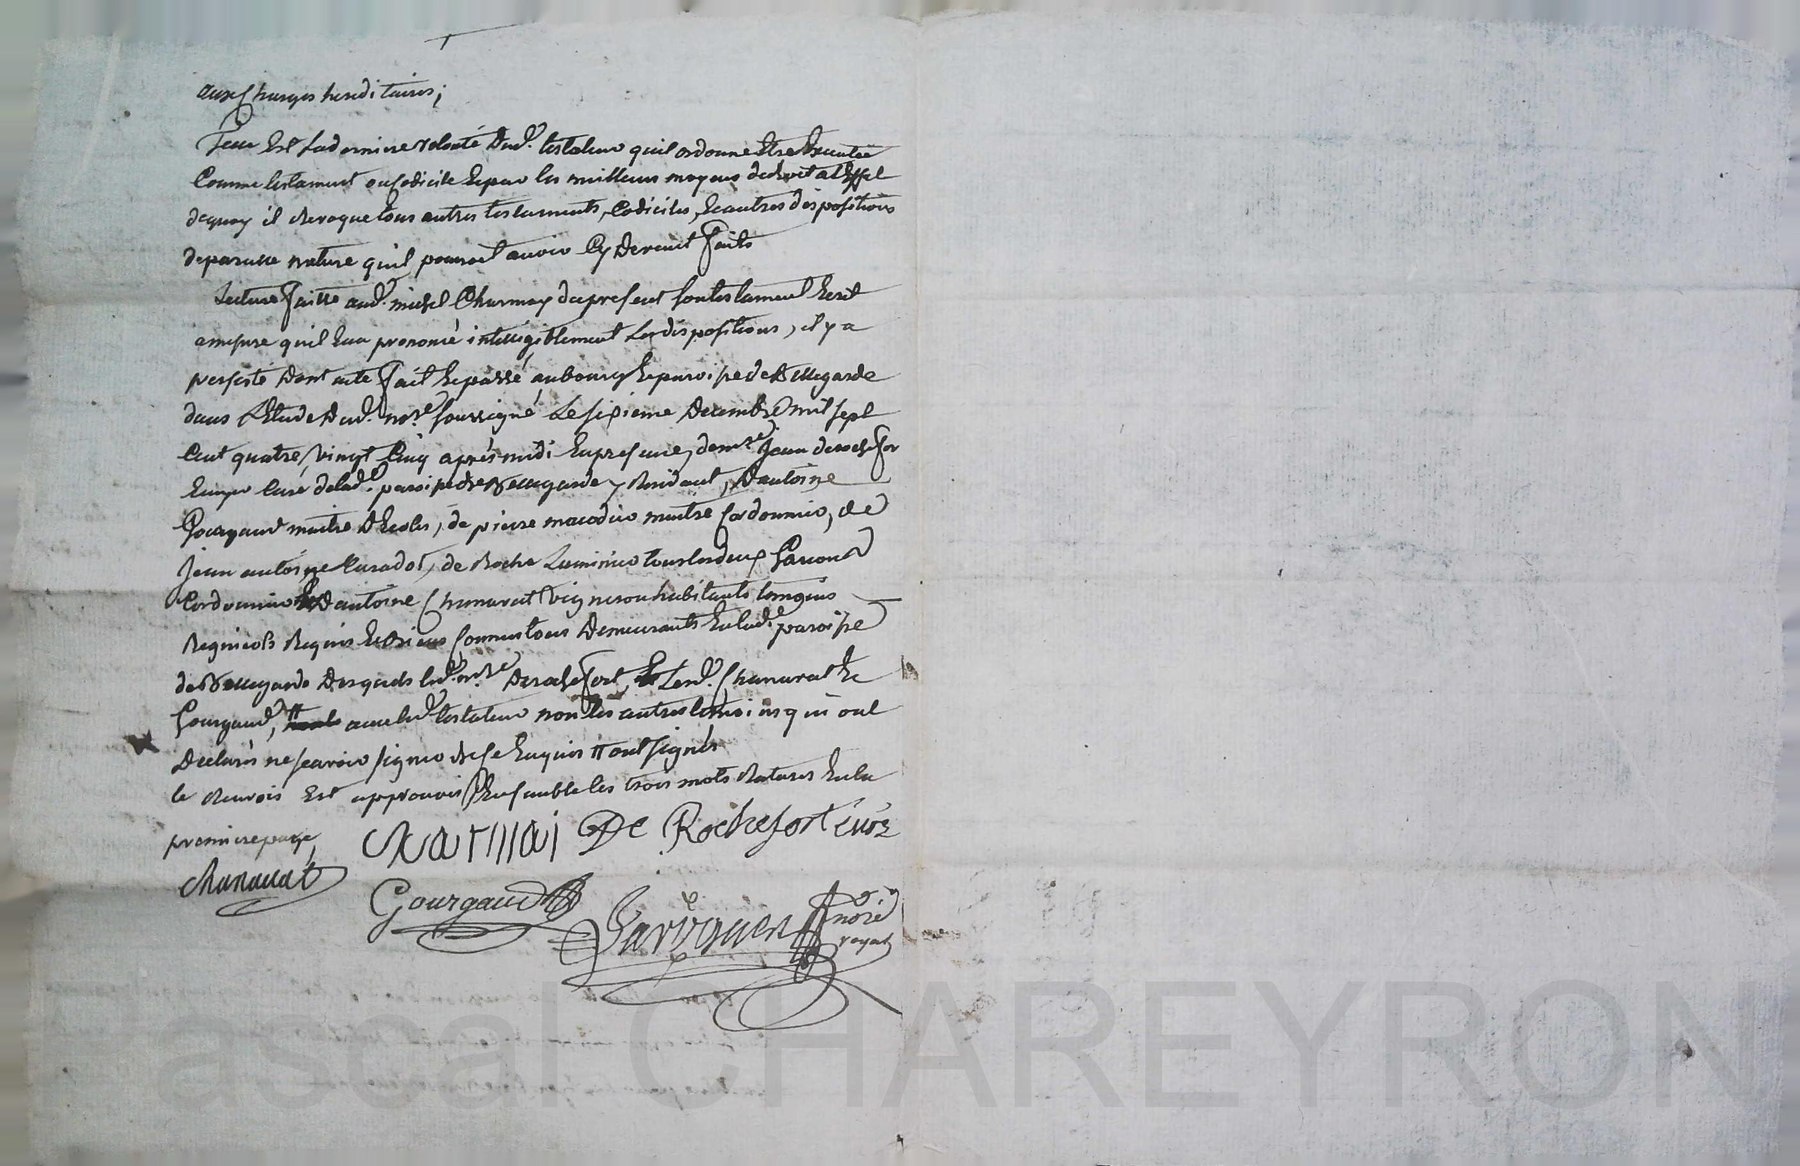 aux charges hereditaires;
Telle Est sa derniere volonté Dud. testateur quil ordonne Etre Executée
Comme testament ou Codicile Et par les meilleurs moyens de droit a l'Effet
dequoy il revoque tous autres testaments, Codiciles, Et autres dispositions
de pareille nature quil pouroit avoir Cy Devant faits
Lecture faitte aud. michel Charmay du present son testament Ecrit
a mesure quil En a prononcé intelligiblement les dispositions, il y a
persisté Dont acte fait Et passé au bourg Et paroisse de Bellegarde
dans L'Etude Dud. nore. soussigné Le sixieme Decembre mil sept
Cent quatre vingt Cinq après midi En presence, de mre. Jean de rochefor
Ecuyer Curé de lad. paroisse de Bellegarde y Residant, D'antoine
Gourgaud maitre D'Ecoles, de pierre maitre Cordonnier, de
Jean antoine de Roche tous les deux Garçons
Cordonniers Et D'antoine Chanavat Vigneron habitants temoins
Regnicols Requis Et Connus tous Demeurants En lad. paroisse
de Bellegarde Desquels led. mre. De rochefort, Led. Chanavat Et
Gourgaud, # avec led. testateur non les autres temoins qui ont
Declarés ne sçavoir signer de ce Enquis # ont signés
le renvois Est approuvé Ensemble les trois mots raturés En la
premiere page,
charmai De Rochefort curé
chanavat
Gourgaud
nore
royal
Pascal CHAREYRON